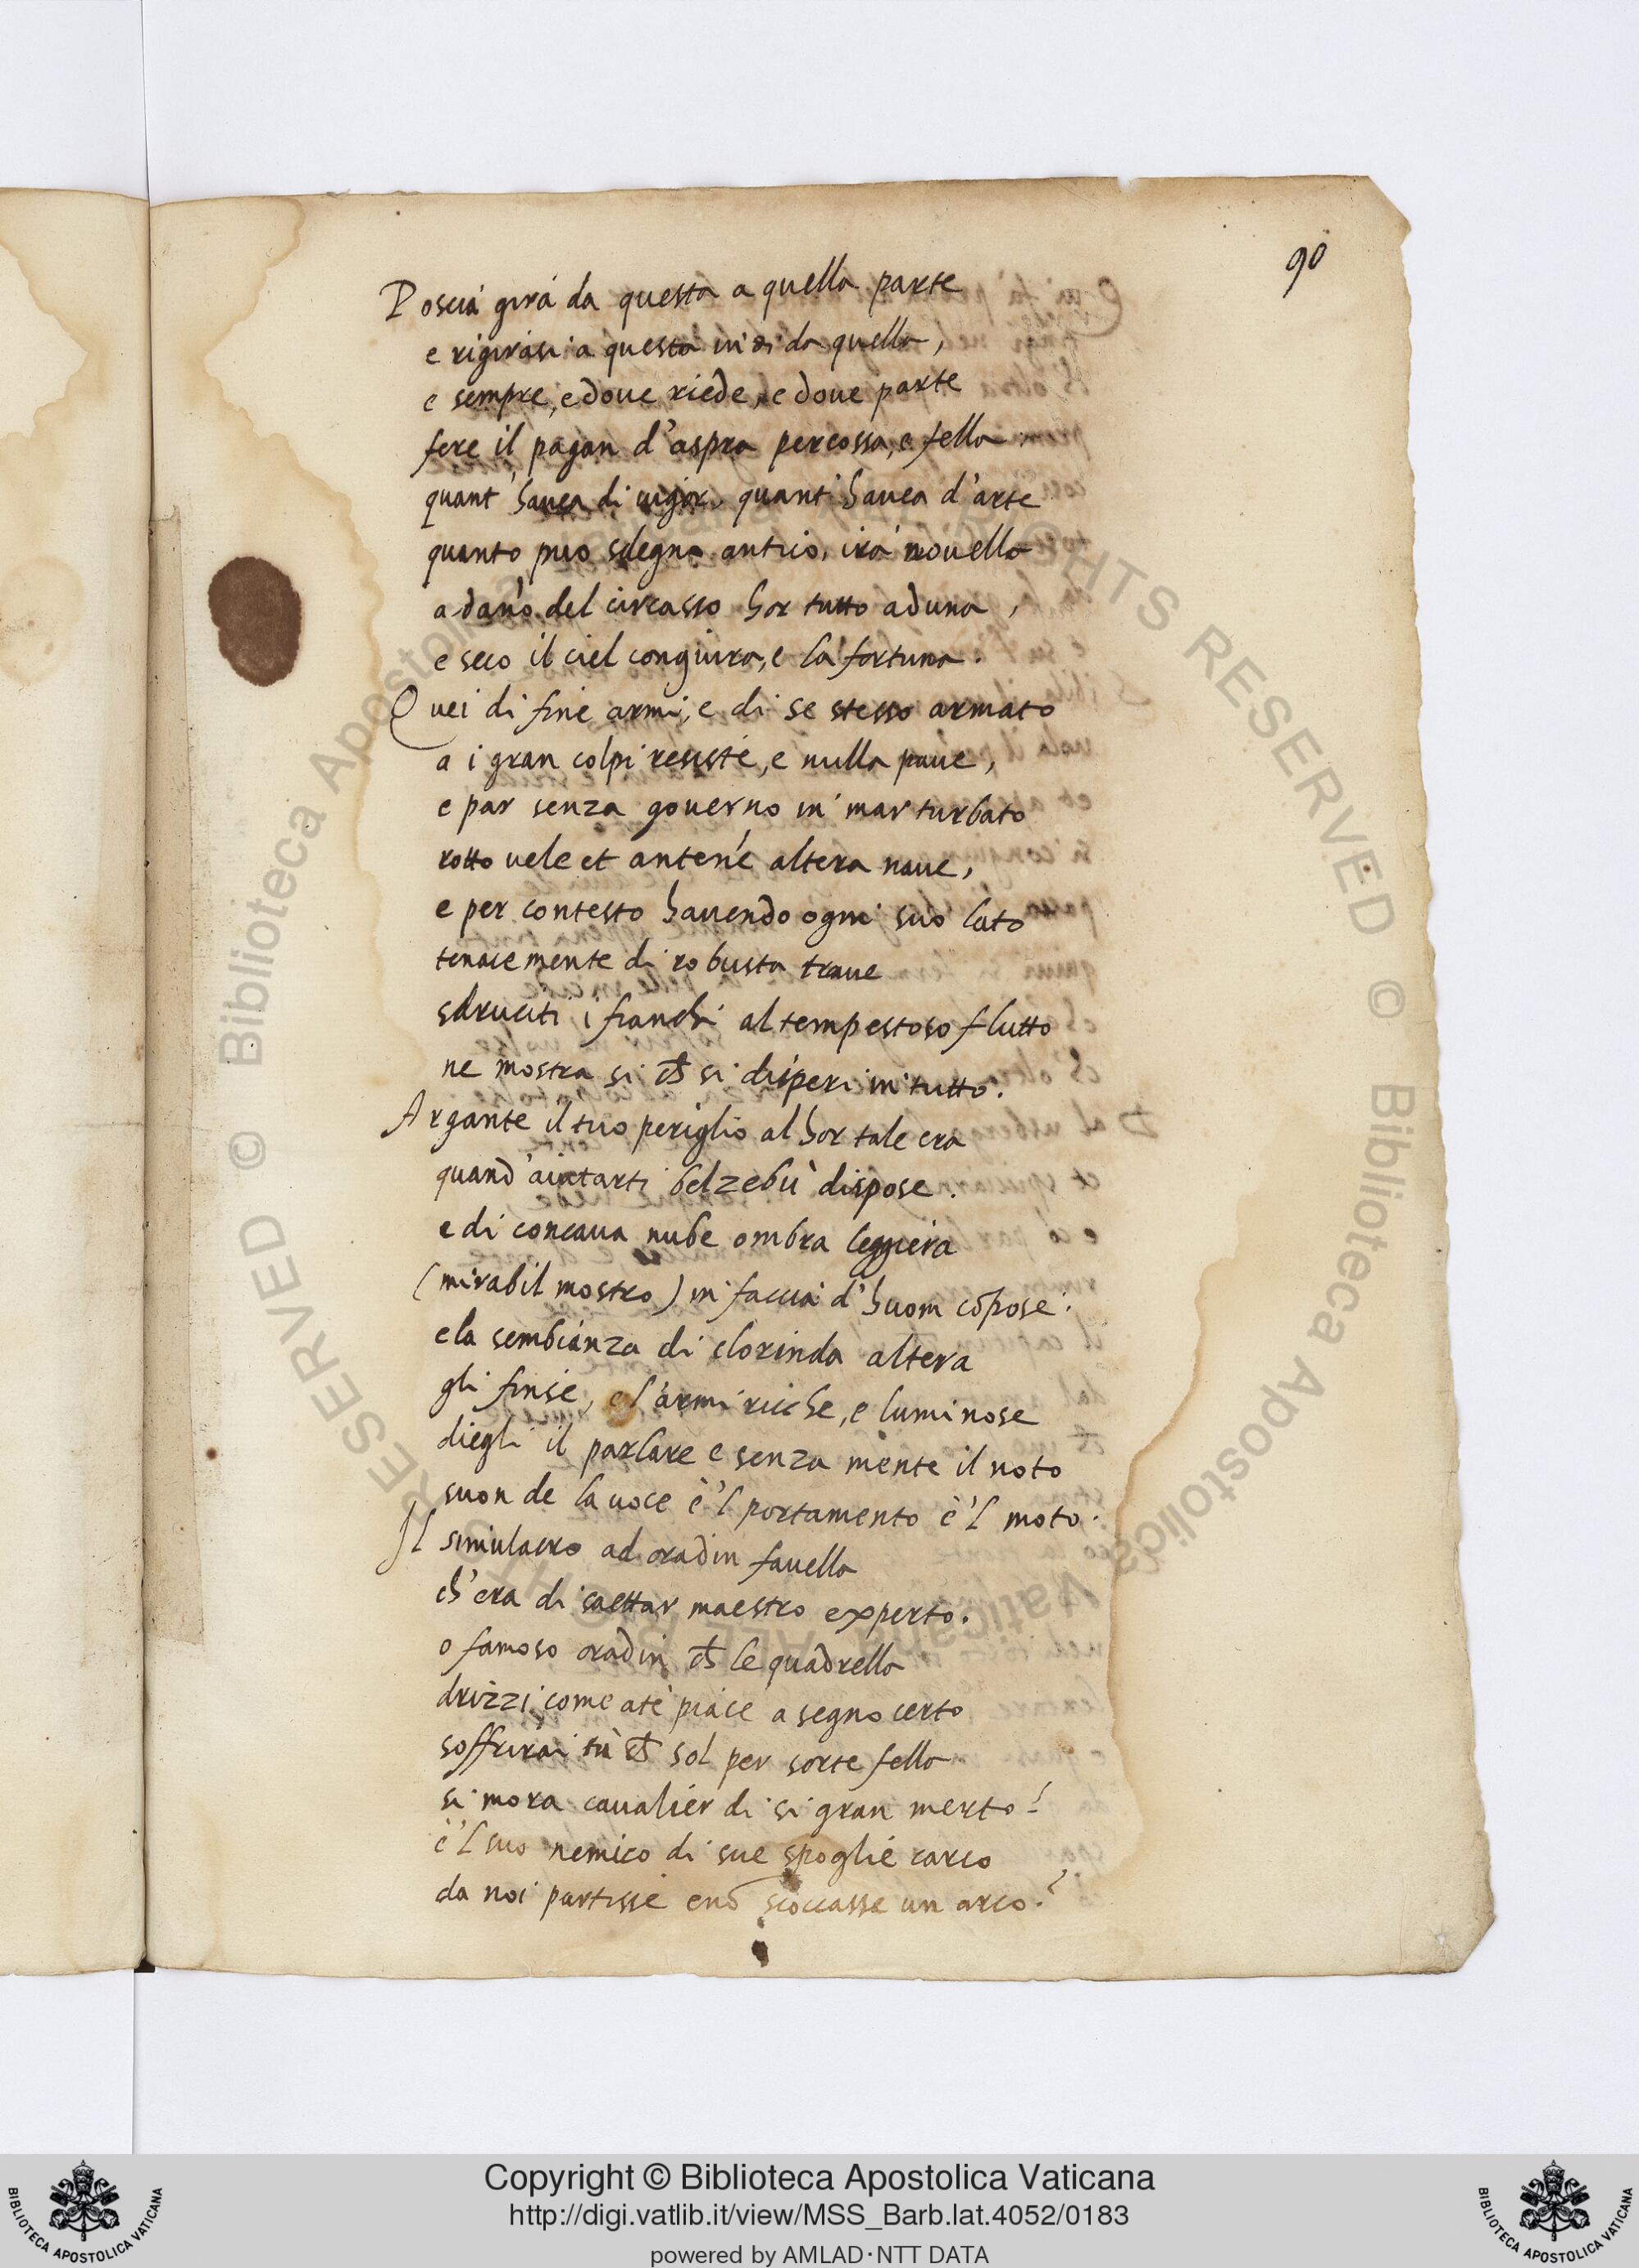 90
Poscia gira da questa a quella parte
e rigirasi a questa indi da quella,
e sempre, e doue riede, e doue parte
fere il pagan d'aspra percossa, e fella.
quant' hauea di uigor, quant' hauea d'arte
quanto puo sdegno antico, ira nouella
a dāno del circasso hor tutto aduna,
e seco il ciel congiura, e la fortuna.
Quei di fine armi, e di se stesso armato
a i gran colpi resiste, e nulla paue,
e par senza gouerno in mar turbato
rotto uele et antenne altera naue,
e per contesto hauendo ogni suo lato
tenacemente di robusta traue
sdruciti i fianchi al tempestoso flutto
ne mostra si ch si disperi in tutto.
Argante il tuo periglio al hor tale era
quand' aiutarti belzebù dispose.
e di concaua nube ombra leggiera
(mirabil mostro) in faccia d'huom cōpose.
e la sembianza di clorinda altera
gli finse, e l'armi ricche, e luminose
diegli il parlare e senza mente il noto
suon de la uoce e'l portamento e'l moto.
Il simulacro ad oradin fauella
ch'era di saettar maestro experto.
o famoso oradin ch le quadrella
drizzi come a te piace a segno certo
soffrirai tù ch sol per sorte fella
si mora caualier di si gran merto?
e'l suo nemico di sue spoglie carco
da noi partisse e nō scoccasse un arco?
© Biblioteca Apostolica Vaticana ALL RIGHTS RESERVED
© Biblioteca Apostolica Vaticana ALL RIGHTS RESERVED
BIBLIOTECA APOSTOLICA VATICANA
Copyright © Biblioteca Apostolica Vaticana
http://digi.vatlib.it/view/MSS_Barb.lat.4052/0183
powered by AMLAD·NTT DATA
BIBLIOTECA APOSTOLICA VATICANA